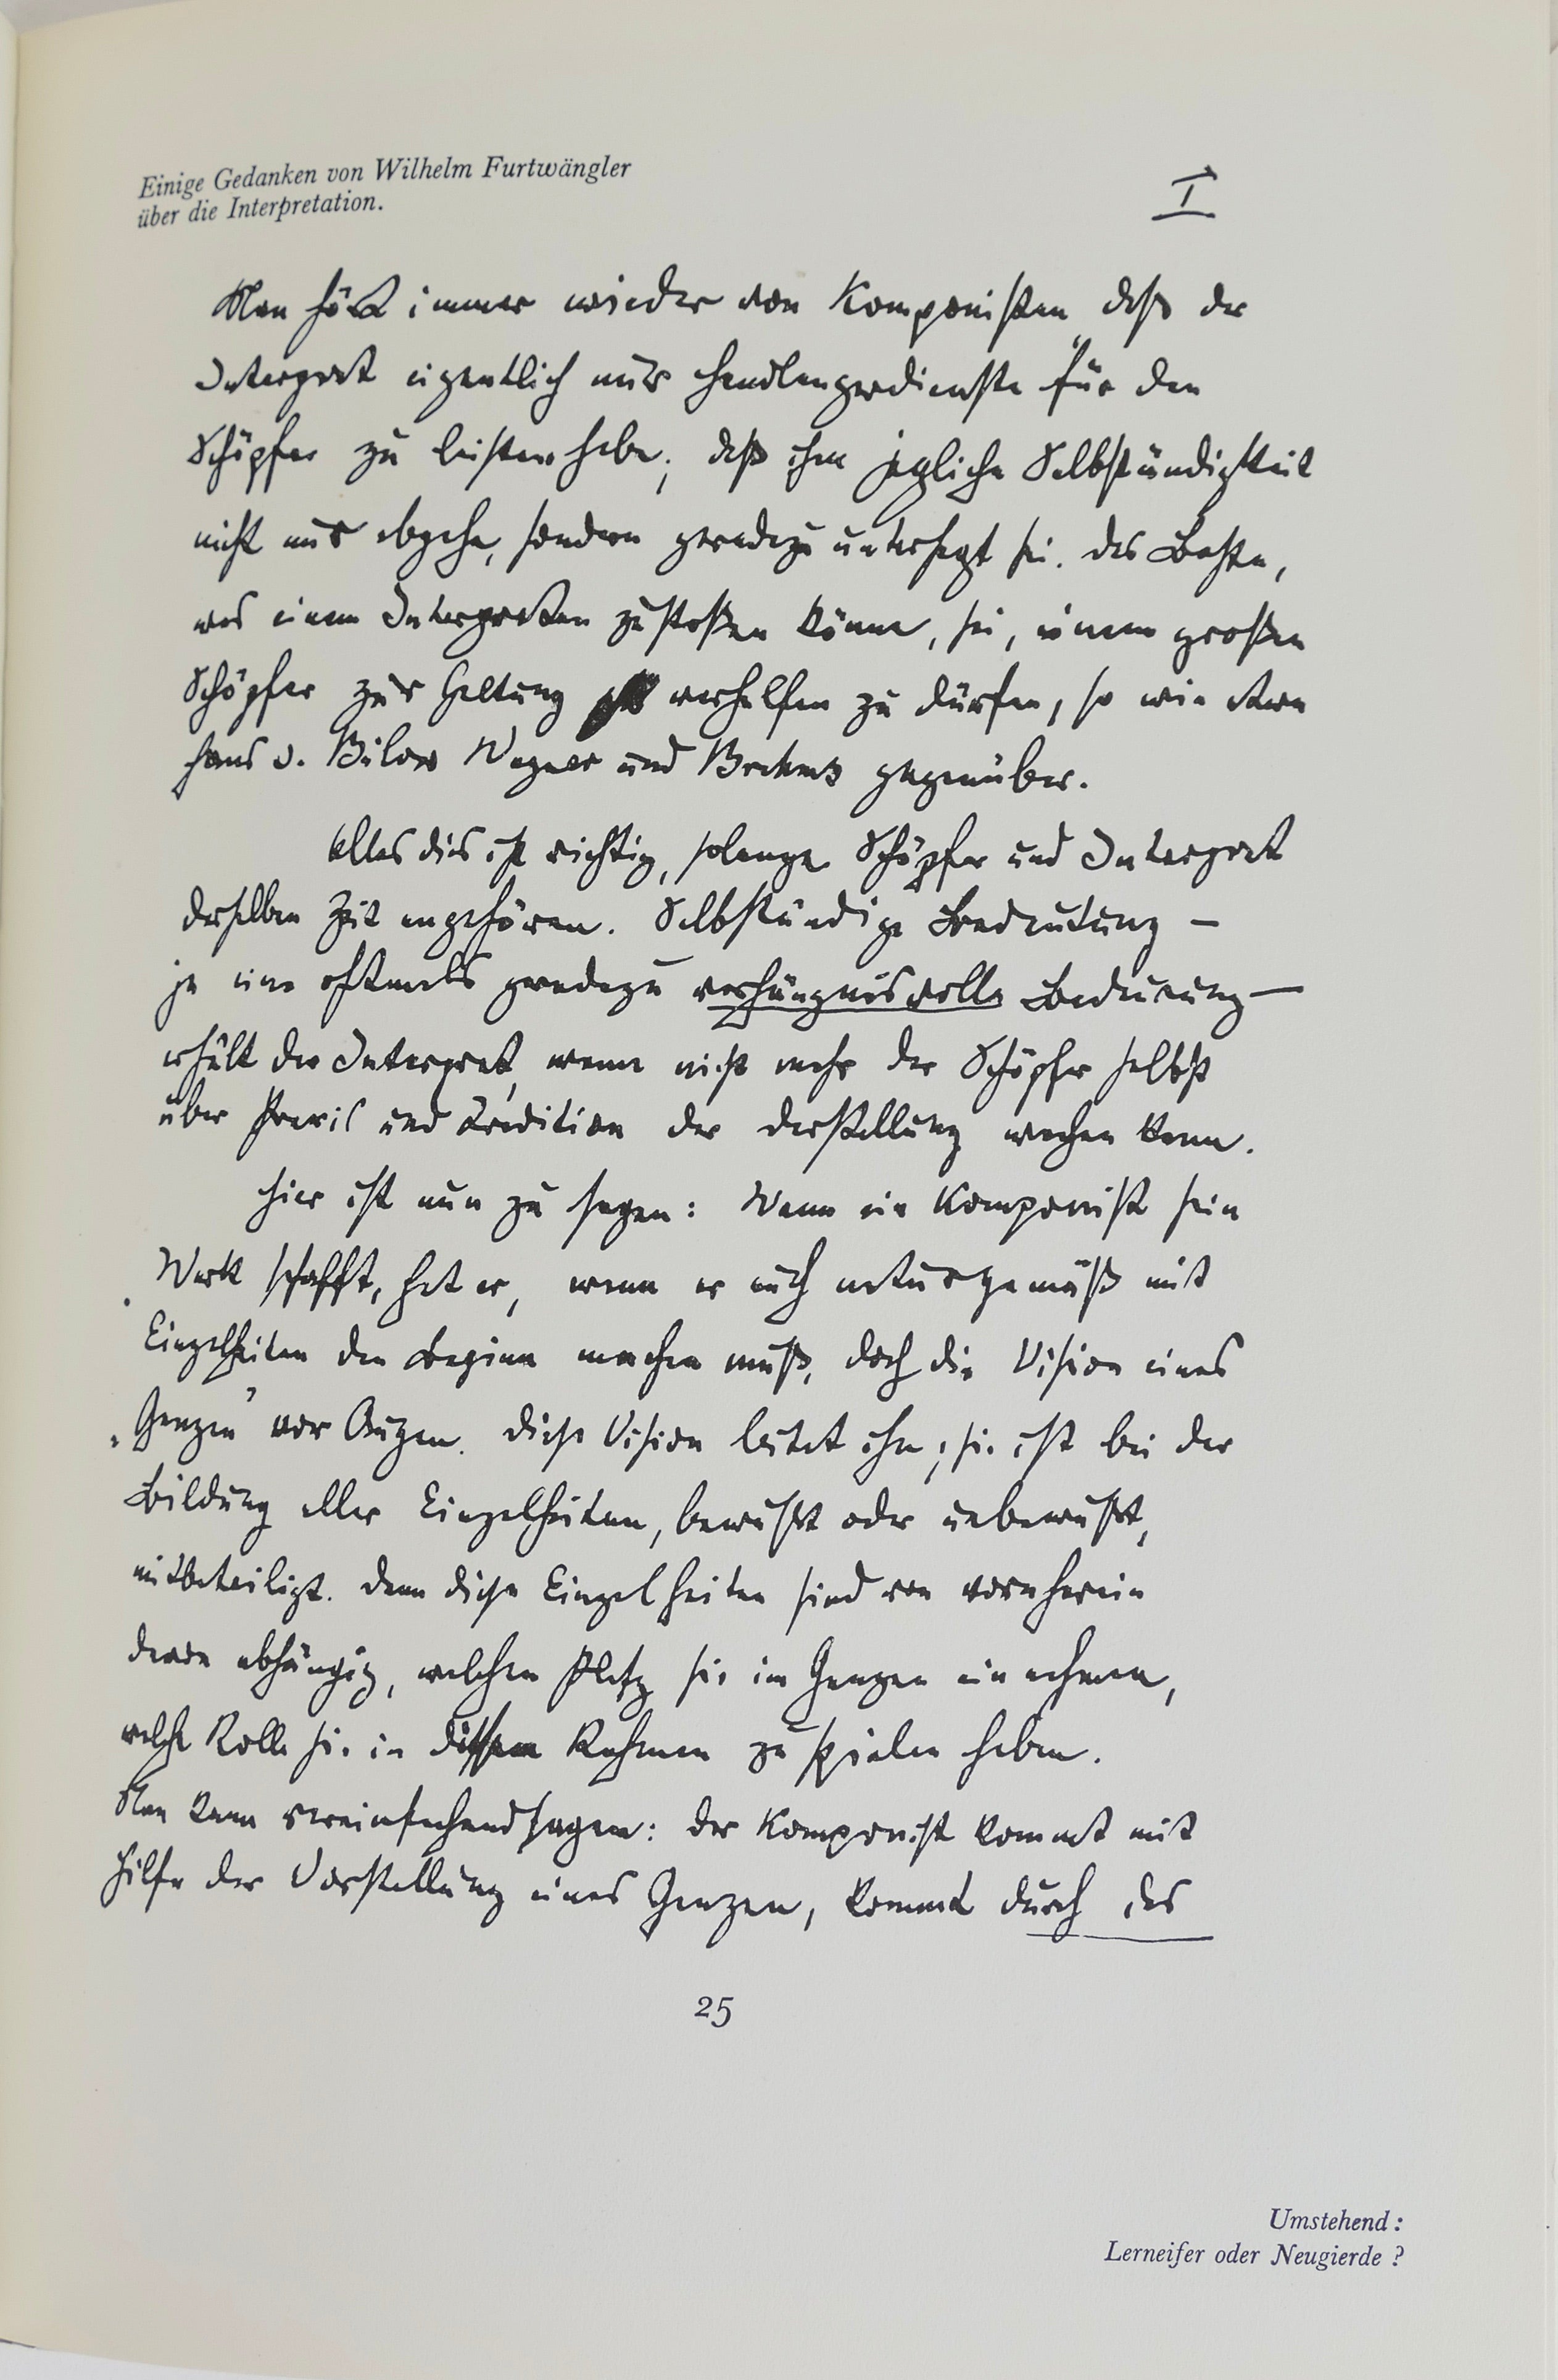 Einige Gedanken von Wilhelm Furtwängler
über die Interpretation.
I
Man hört immer wieder von Komponisten, daß der
Interpret eigentlich nur Handlangerdienste für den
Schöpfer zu leisten habe; daß ihm jegliche Selbständigkeit
nicht nur abgehe, sondern geradezu untersagt sei. Das Beste,
was einem Interpreten zustoßen könne, sei, einem großen
Schöpfer zur Geltung verhelfen zu dürfen, so wie etwa
Hans v. Bülow Wagner und Brahms gegenüber.
Alles dies ist richtig, solange Schöpfer und Interpret
derselben Zeit angehören. Selbständige Bedeutung –
ja eine oftmals geradezu verhängnisvolle Bedeutung –
erhält der Interpret, wenn nicht mehr der Schöpfer selbst
über Praxis und Tradition der Darstellung wachen kann.
Hier ist nun zu sagen: Wenn ein Komponist sein
Werk schafft, hat er, wenn er auch naturgemäß mit
Einzelheiten den Beginn machen muß, doch die Vision eines
„Ganzen" vor Augen. Diese Vision leitet ihn; sie ist bei der
Bildung aller Einzelheiten, bewußt oder unbewußt,
mitbeteiligt. Denn diese Einzelheiten sind von vornherein
davon abhängig, welchen Platz sie im Ganzen einnehmen,
welche Rolle sie in diesem Rahmen zu spielen haben.
Man kann vereinfachend sagen: der Komponist kommt mit
Hilfe der Vorstellung eines Ganzen, kommt durch das
25
Umstehend:
Lerneifer oder Neugierde ?